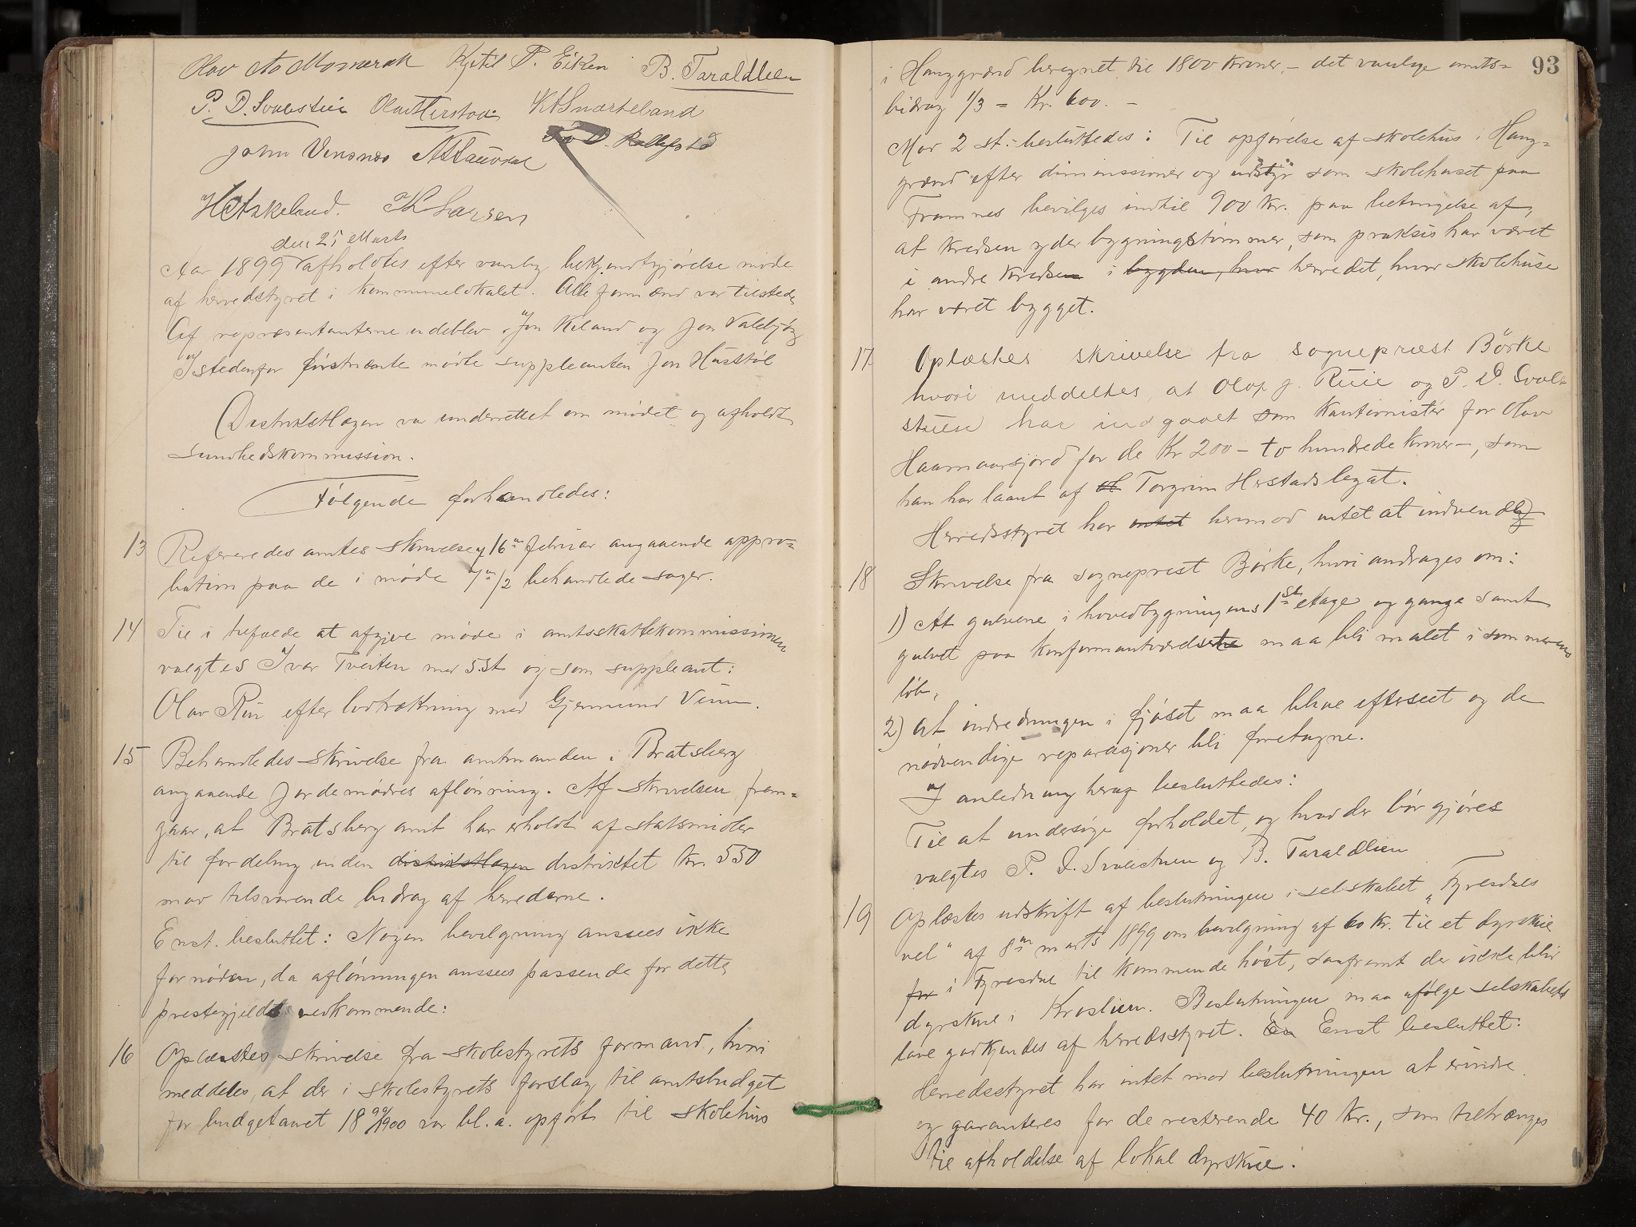 Kjetil P. Eiken B. Taraldlien
P. D. Svalestuen
John Vensnes
H. Askeland. K Larsen
den 25 Marts
Aar 1899 afholdtes efter vanlig bekjendtgjørelse møde
af herredstyret i kommunelokalet. Alle formænd var tilstede
Af repræsentanterne udeblev Jon Kiland og Jon Valebjørg
Istedenfor førstnævnte mødte suppleanten Jon Husstøl
Distriktslægen var underrettet om mødet og afholdt
sundhedskommission.
Følgende forhandledes:
13 Refereredes amtets skrivelse af 16de februar angaaende appro-
bation paa de i møde 7de/2 behandlede sager.
14 Til i tilfælde at afgive møde i amtsskattekommissionen
valgtes Ivar Tveiten med 5 st og som suppleant:
Olav Rui efter lodtrækning med Gjermund Veum.
15 Behandledes skrivelse fra amtmanden i Bratsberg
angaaende jordemødres aflønning. Af skrivelsen frem-
gaar, at Bratsberg amt har erholdt af statsmidler
til fordeling inden distriktslægen distriktet kr. 550
mod tilsvarende bidrag af herrederne.
Enst. besluttet: Nogen bevilgning ansees ikke
fornøden, da aflønningen ansees passende for dette
prestegjelds vedkommende:
16 Oplæstes skrivelse fra skolestyrets formand, hvori
meddeles, at der i skolestyrets forslag til amtsbudget
for budgetaaret 1899/1900 var bl. a. opført til skolehus
93
i Hauggrænd beregnet til 1800 kroner, – det vanlige amts-
bidrag 1/3 = Kr. 600. –
Mod 2 st. besluttedes: Til opførelse af skolehus i Haug-
grænd efter dimensioner og udstyr som skolehuset paa
Framnes bevilges indtil 900 kr. paa betingelse af,
at kredsen yder bygningstømmer, som praksis har været
i andre kredse i bygden, hvor herredet, hvor skolehuse
har været bygget.
17 Oplæstes skrivelse fra sogneprest Börke
hvori meddeltes, at Olav J. Ruie og P. D. Svale-
stuen har indgaaet som kautionister for Olav
Haamaarsjord for de Kr 200 – to hundrede kroner –, som
han har laant af Torgrim Herstads legat.
Herredsstyret har intet hermod intet at indvende
18 Skrivelse fra sogneprest Børke, hvori andrages om:
1) At gulvene i hovedbygningens 1ste etage og gange samt
gulvet paa konfirmantværelset maa bli malet i sommerens
løb,
2) At indredningen i fjøset maa blive efterseet og de
nødvendige reparasjoner bli foretagne.
I anledning heraf besluttedes:
Til at undersøge forholdet, og hvad der bør gjøres
valgtes P. D. Svalestuen og B. Taraldlien
19 Oplæstes udskrift af beslutningen i selskabet „Fyresdals
vel“ af 8de marts 1899 om bevilgning af 60 kr. til et dyrskue
for i Fyresdal til kommende høst, saafremt der ikke blir
dyrskue i Kroslien. Beslutningen maa ifølge selskabets
love godkjendes af herredsstyret. En Enst besluttet:
Herredsstyret har intet mod beslutningen at erindre
og garanteres for de resterende 40 kr., som tiltrænges
til afholdelse af lokal dyrskue.